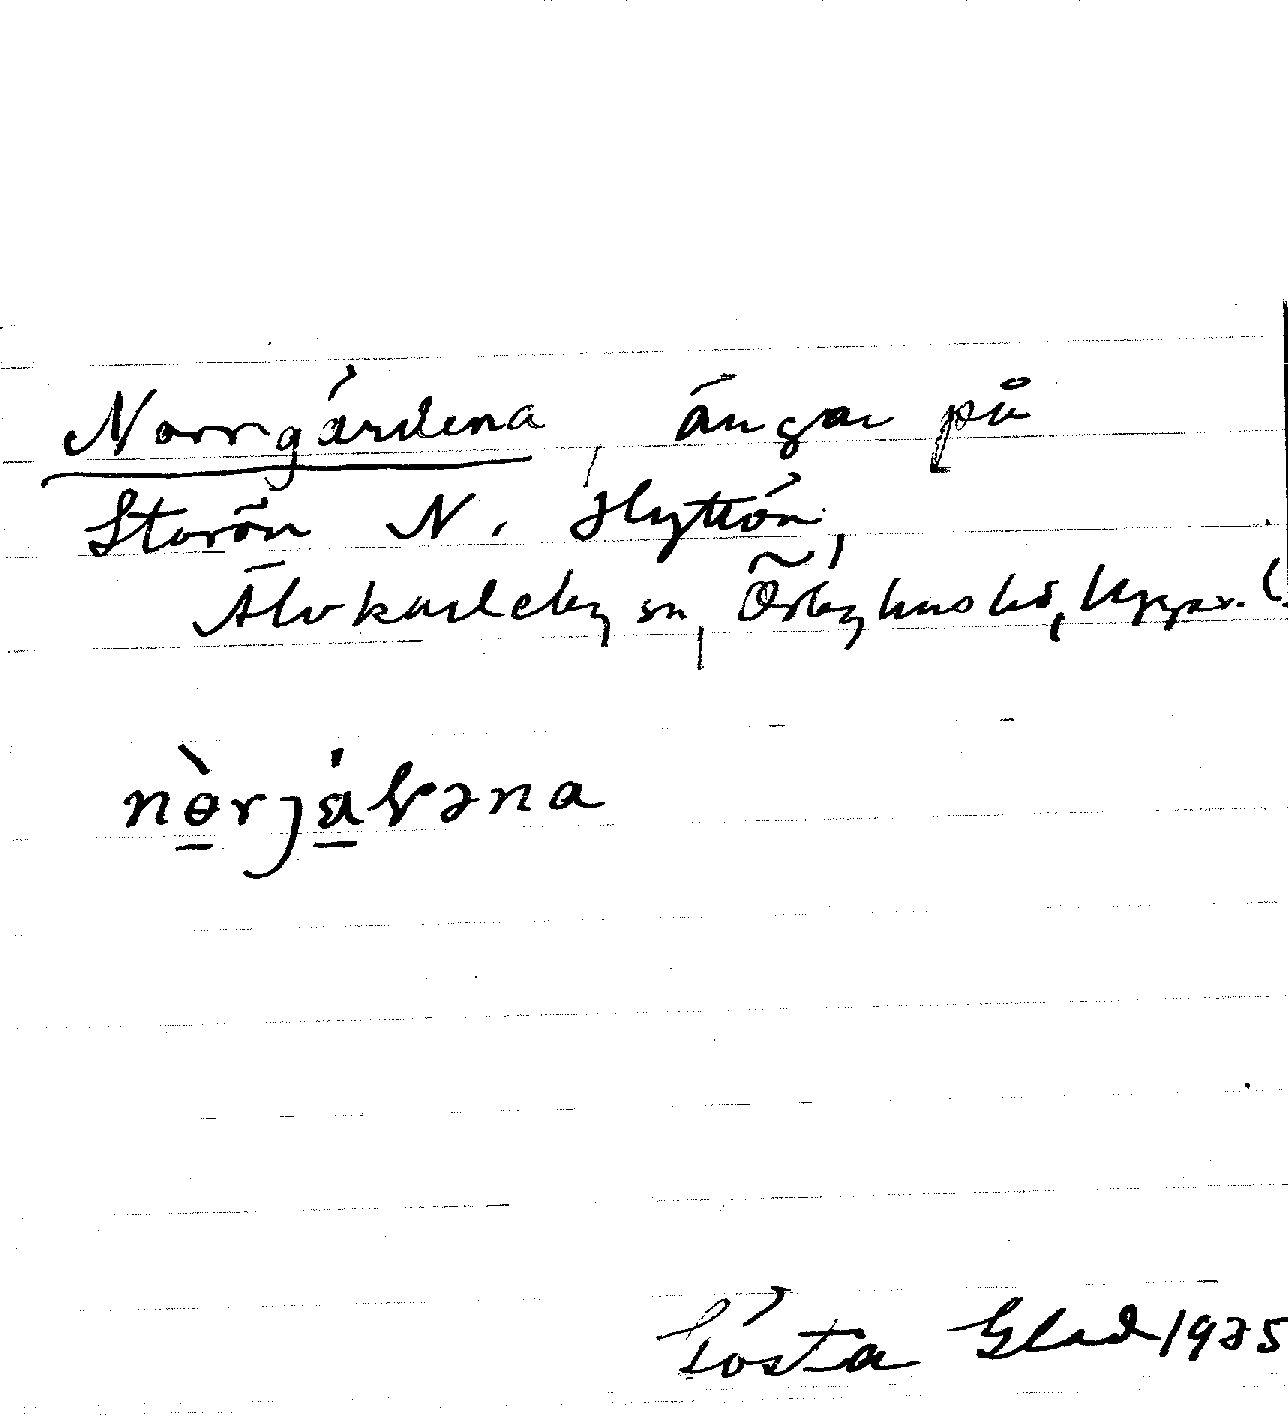 Norrgärdena, ängar på
Storön N. Hyttön,
Älvkarleby sn, Örbyhus hd, Uppsv. l
nò̱rjɛ̱́ɽəna
Gösta Glad 1935